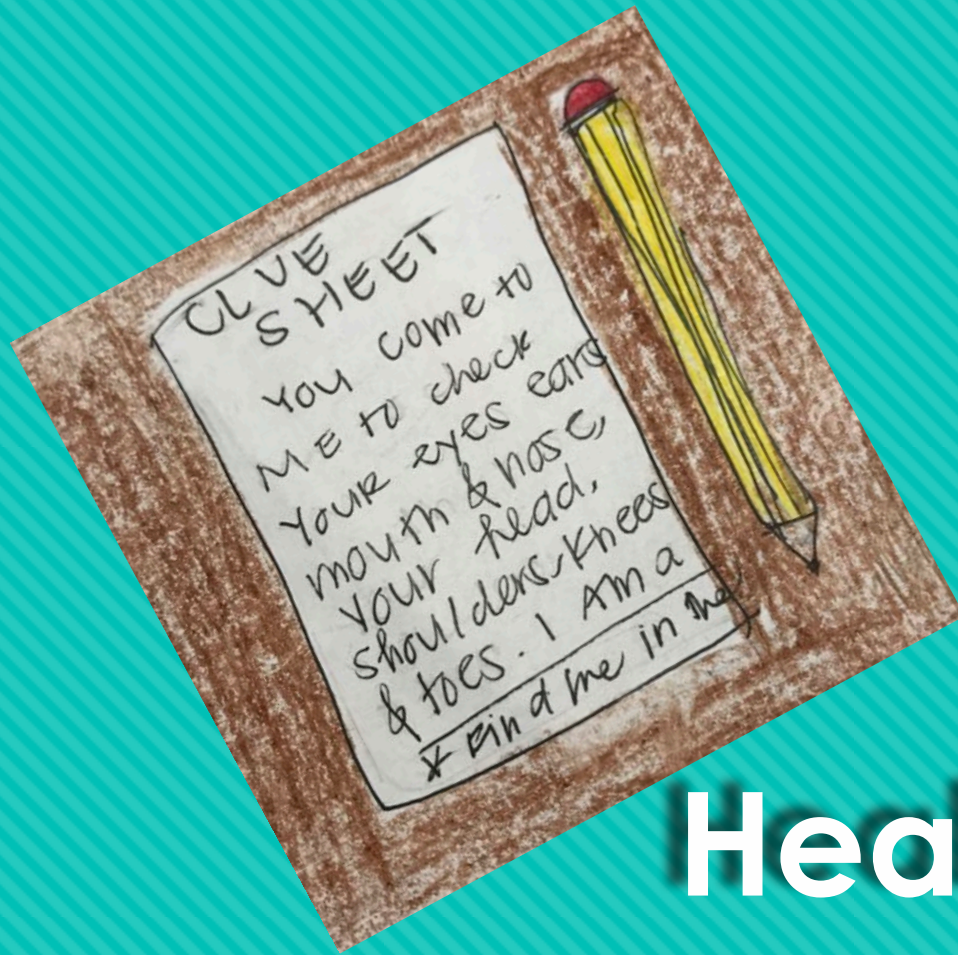 CLUE
SHEET
YOU come to
ME to check
YOUR eyes ears
mouth & nose,
Your head,
shoulders, knees
& toes. I AM a
* Find me in the
Hea